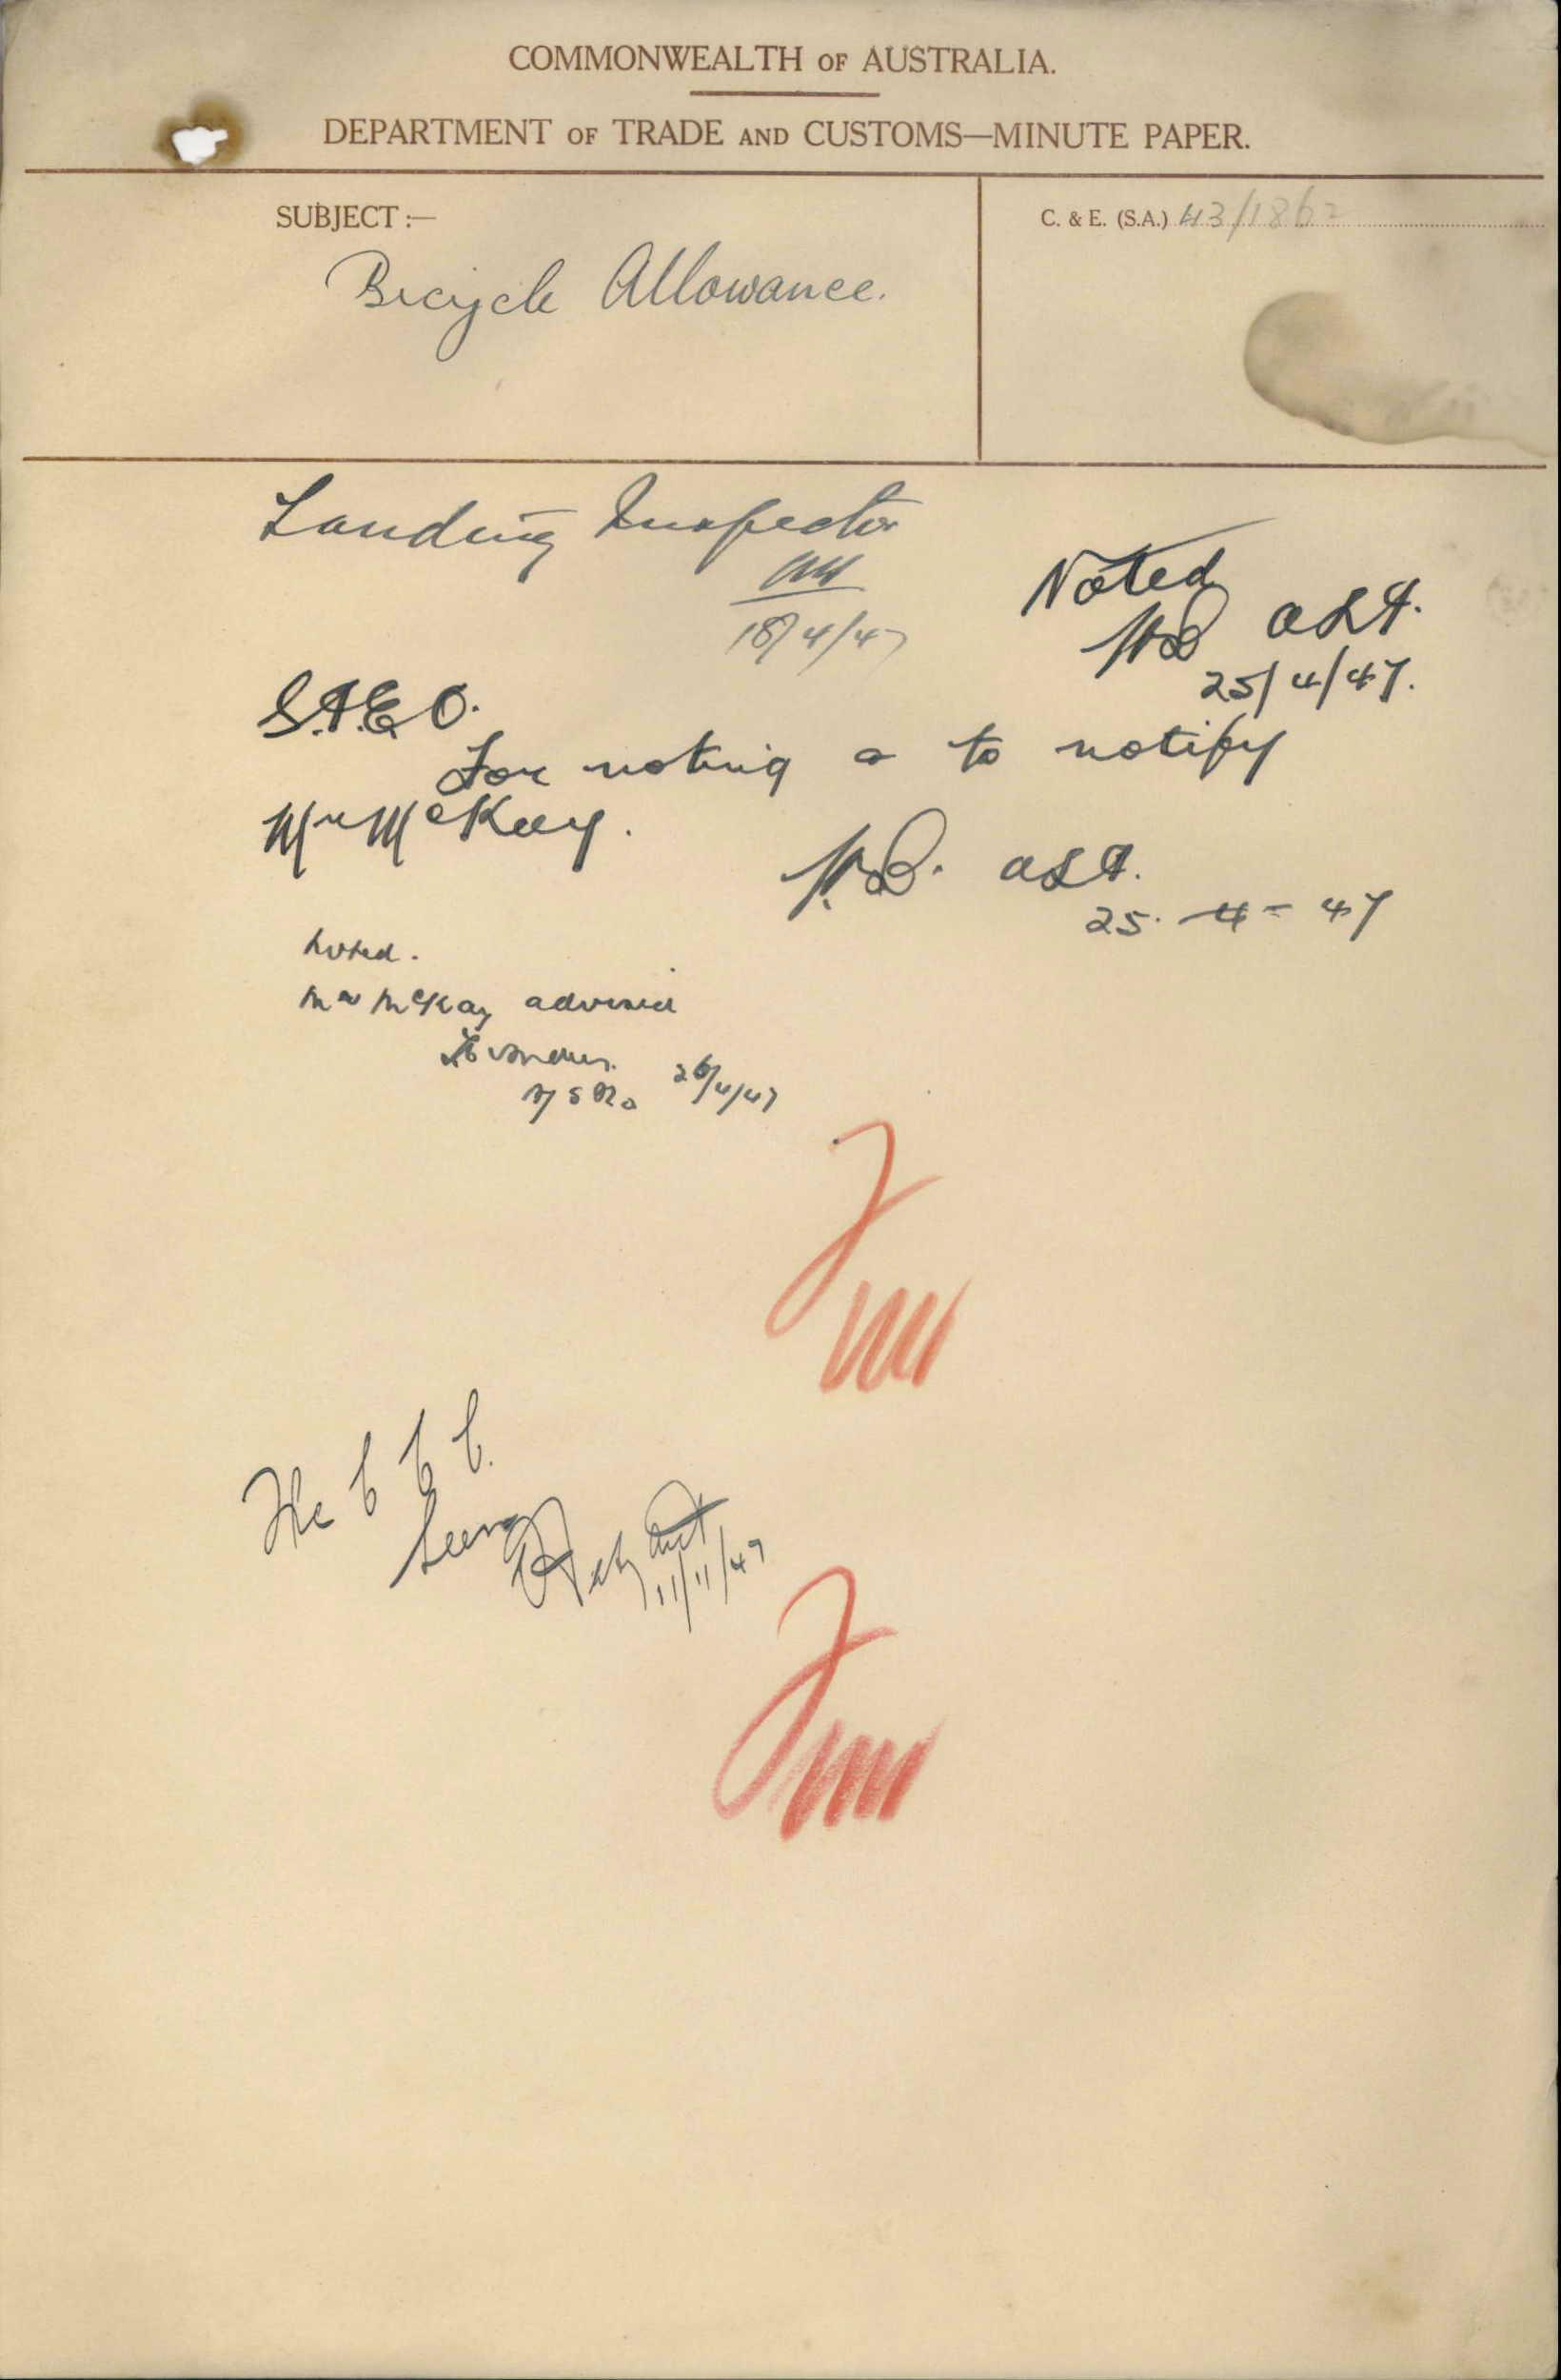 COMMONWEALTH OF AUSTRALIA.
DEPARTMENT OF TRADE AND CUSTOMS—MINUTE PAPER.
SUBJECT:—
C. & E. (S.A.) 43/1862
Bicycle Allowance.
Landing Inspector
18/4/47
Noted
25/4/47.
For noting & to notify
Mr McKay.
25-4-47
Noted.
Mr McKay advised
26/4/47
The C C C.
Seen
11/11/47